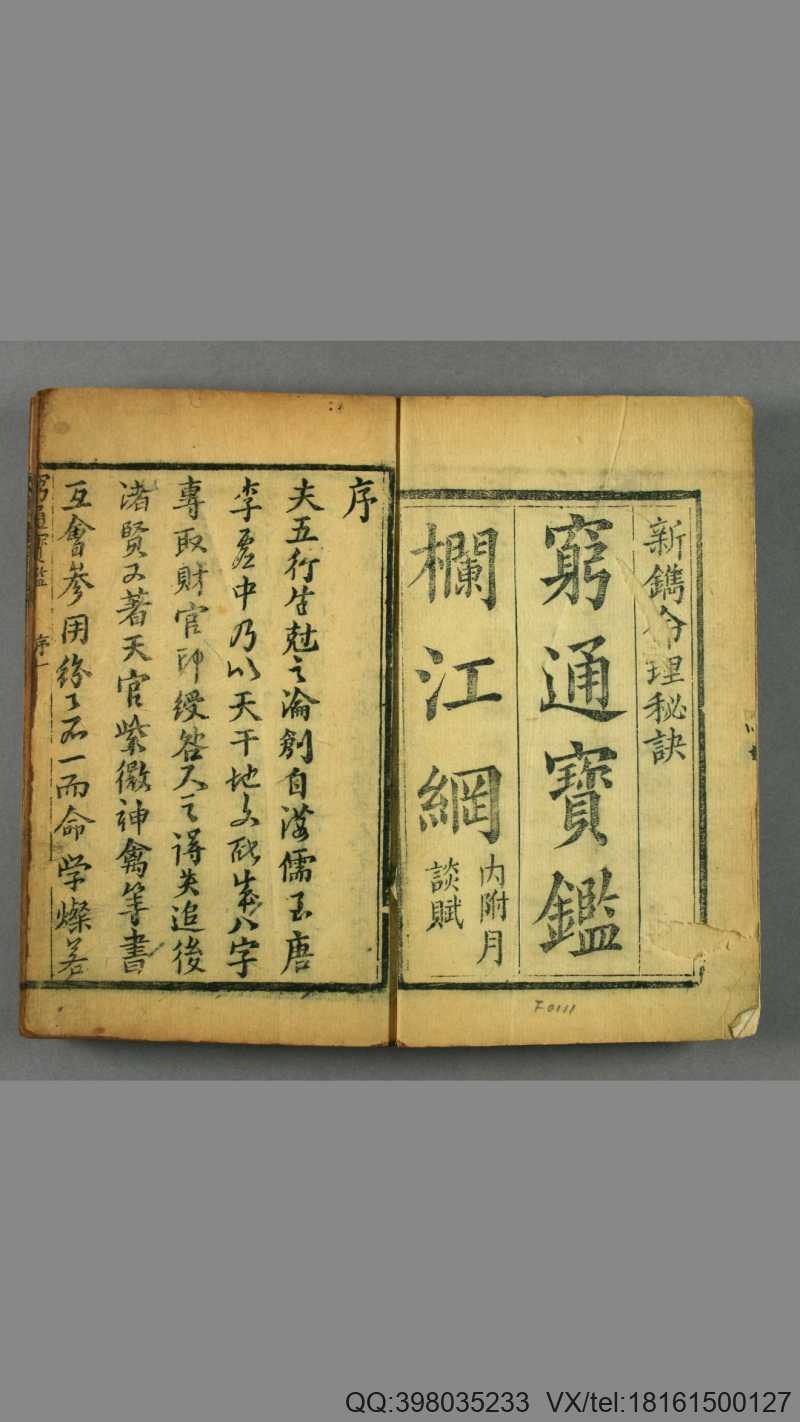 新鐫命理秘訣
窮通寶鑑
欄江網
內附月
談賦
序
夫五行生尅之論創自漢儒至唐
李虛中乃以天干地支配成八字
專取財官印綬啓人之得失追後
諸賢又著天官紫微神禽等書
互會參用紛々不一而命学燦若
窮通寶鑑
序一
F0111
QQ:398035233 VX/tel:18161500127